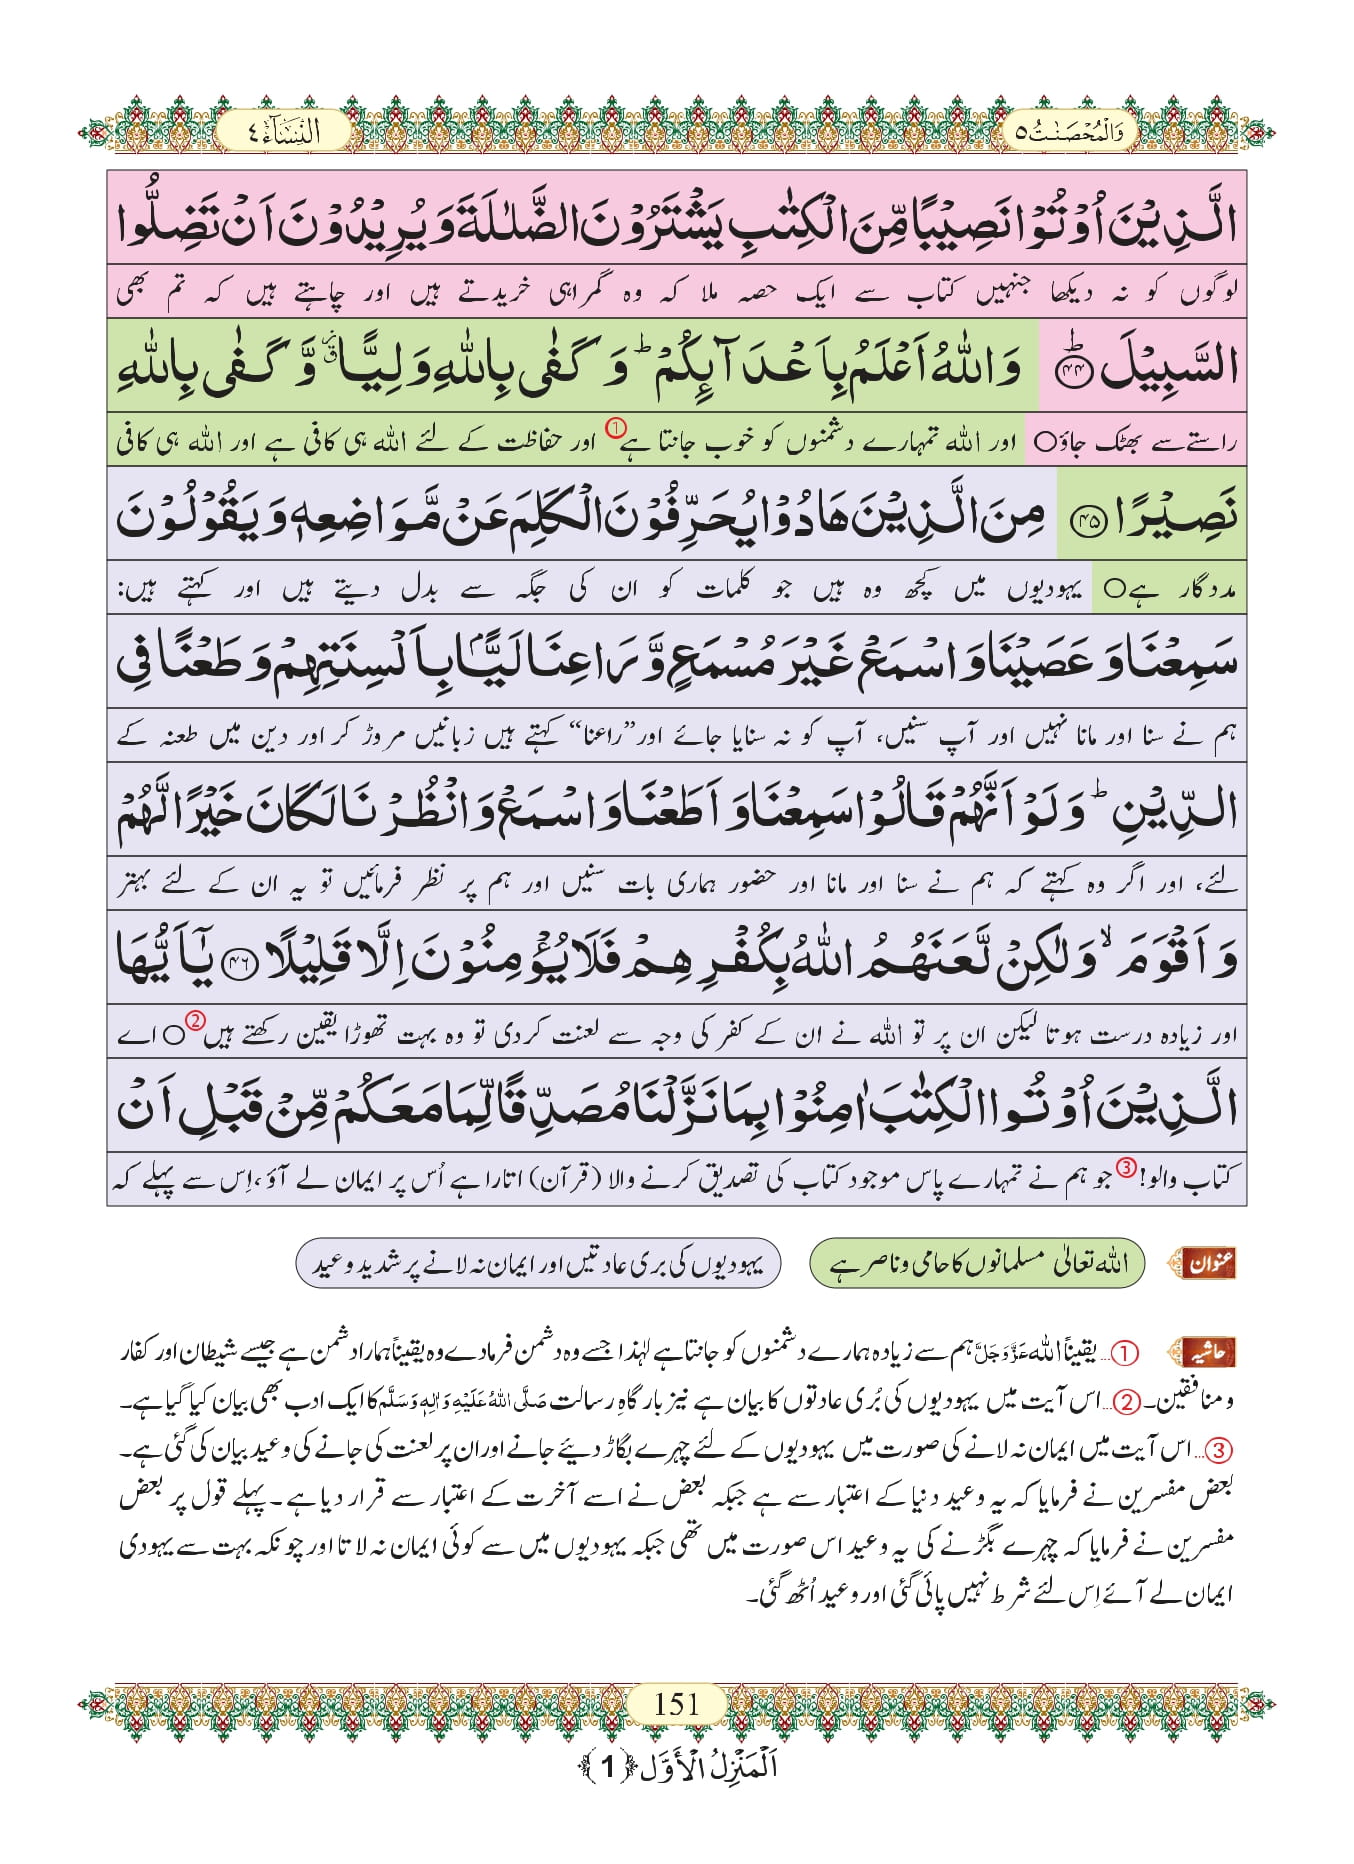 وَالْمُحْصَنٰتُ ٥
النِّسَآء ٤
الَّذِیْنَ اُوْتُوْا نَصِیْبًا مِّنَ الْكِتٰبِ یَشْتَرُوْنَ الضَّلٰلَةَ وَ یُرِیْدُوْنَ اَنْ تَضِلُّوا
لوگوں کو نہ دیکھا جنہیں کتاب سے ایک حصہ ملا کہ وہ گمراہی خریدتے ہیں اور چاہتے ہیں کہ تم بھی
السَّبِیْلَؕ۝۴۴ وَ اللّٰهُ اَعْلَمُ بِاَعْدَآىٕكُمْؕ وَ كَفٰى بِاللّٰهِ وَلِیًّا ﱪ وَّ كَفٰى بِاللّٰهِ
راستے سے بھٹک جاؤ○ اور اللہ تمہارے دشمنوں کو خوب جانتا ہے① اور حفاظت کے لئے اللہ ہی کافی ہے اور اللہ ہی کافی
نَصِیْرًا۝۴۵ مِنَ الَّذِیْنَ هَادُوْا یُحَرِّفُوْنَ الْكَلِمَ عَنْ مَّوَاضِعِهٖ وَ یَقُوْلُوْنَ
مددگار ہے○ یہودیوں میں کچھ وہ ہیں جو کلمات کو ان کی جگہ سے بدل دیتے ہیں اور کہتے ہیں:
سَمِعْنَا وَ عَصَیْنَا وَ اسْمَعْ غَیْرَ مُسْمَعٍ وَّ رَاعِنَا لَیًّۢا بِاَلْسِنَتِهِمْ وَ طَعْنًا فِی
ہم نے سنا اور مانا نہیں اور آپ سنیں، آپ کو نہ سنایا جائے اور ”راعنا“ کہتے ہیں زبانیں مروڑ کر اور دین میں طعنہ کے
الدِّیْنِؕ وَ لَوْ اَنَّهُمْ قَالُوْا سَمِعْنَا وَ اَطَعْنَا وَ اسْمَعْ وَ انْظُرْنَا لَكَانَ خَیْرًا لَّهُمْ
لئے، اور اگر وہ کہتے کہ ہم نے سنا اور مانا اور حضور ہماری بات سنیں اور ہم پر نظر فرمائیں تو یہ ان کے لئے بہتر
وَ اَقْوَمَۙ وَ لٰكِنْ لَّعَنَهُمُ اللّٰهُ بِكُفْرِهِمْ فَلَا یُؤْمِنُوْنَ اِلَّا قَلِیْلًا۝۴۶ یٰۤاَیُّهَا
اور زیادہ درست ہوتا لیکن ان پر تو اللہ نے ان کے کفر کی وجہ سے لعنت کردی تو وہ بہت تھوڑا یقین رکھتے ہیں②○ اے
الَّذِیْنَ اُوْتُوا الْكِتٰبَ اٰمِنُوْا بِمَا نَزَّلْنَا مُصَدِّقًا لِّمَا مَعَكُمْ مِّنْ قَبْلِ اَنْ
کتاب والو!③ جو ہم نے تمہارے پاس موجود کتاب کی تصدیق کرنے والا (قرآن) اتارا ہے اُس پر ایمان لے آؤ، اِس سے پہلے کہ
عنوان اللہ تعالیٰ مسلمانوں کا حامی و ناصر ہے یہودیوں کی بری عادتیں اور ایمان نہ لانے پر شدید وعید
حاشیہ ①... یقیناً اللہ عَزَّوَجَلَّ ہم سے زیادہ ہمارے دشمنوں کو جانتا ہے لہٰذا جسے وہ دشمن فرمادے وہ یقیناً ہمارا دشمن ہے جیسے شیطان اور کفار
و منافقین۔ ②... اس آیت میں یہودیوں کی بُری عادتوں کا بیان ہے نیز بارگاہِ رسالت صَلَّی اللہُ عَلَیْہِ وَاٰلِہٖ وَسَلَّم کا ایک ادب بھی بیان کیا گیا ہے۔
③... اس آیت میں ایمان نہ لانے کی صورت میں یہودیوں کے لئے چہرے بگاڑ دیئے جانے اور ان پر لعنت کی جانے کی وعید بیان کی گئی ہے۔
بعض مفسرین نے فرمایا کہ یہ وعید دنیا کے اعتبار سے ہے جبکہ بعض نے اسے آخرت کے اعتبار سے قرار دیا ہے۔ پہلے قول پر بعض
مفسرین نے فرمایا کہ چہرے بگڑنے کی یہ وعید اس صورت میں تھی جبکہ یہودیوں میں سے کوئی ایمان نہ لاتا اور چونکہ بہت سے یہودی
ایمان لے آئے اِس لئے شرط نہیں پائی گئی اور وعید اُٹھ گئی۔
151
اَلْمَنْزِلُ الْاَوَّل ﴿1﴾